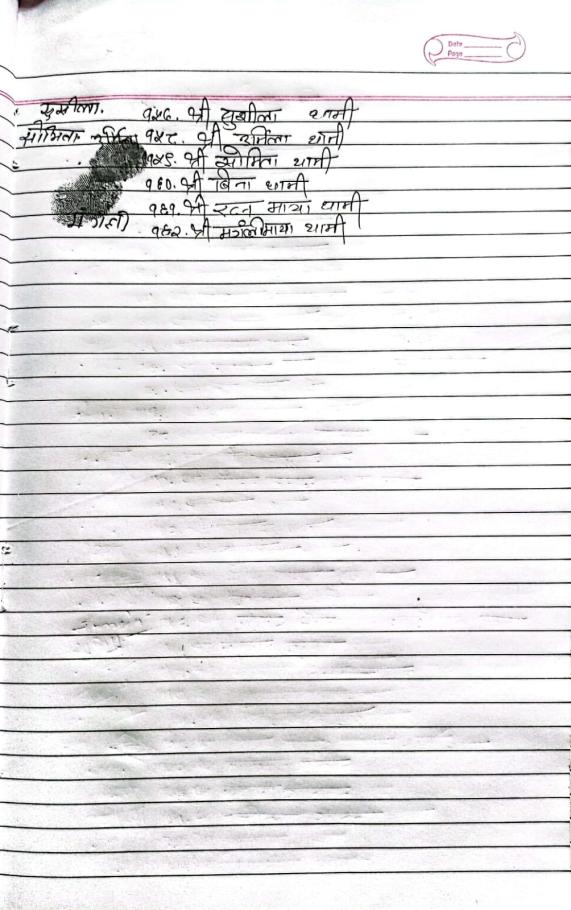 Date
Page
सुसीला. १५७. श्री सुशीला थामी
सोमिता उर्मिला १५८. श्री उर्मिला थामी
१५९. श्री सोमिता थामी
१६०. श्री बिना थामी
१६१. श्री रत्न माया थामी
मंगली १६२. श्री मगंलीमाया थामी